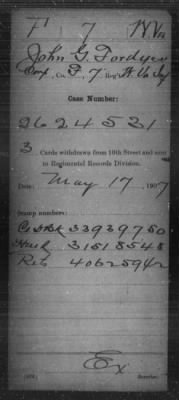 F 7 W Va
John G. Fordyce
Corp., Co. F, 7 Reg't W. Va. Inf
Case Number:
2624531
3 Cards withdrawn from 10th Street and sent
to Regimental Records Division.
Date: May 17, 1907
Stamp numbers:
33939750
31518548
Ret 40625942
Ex